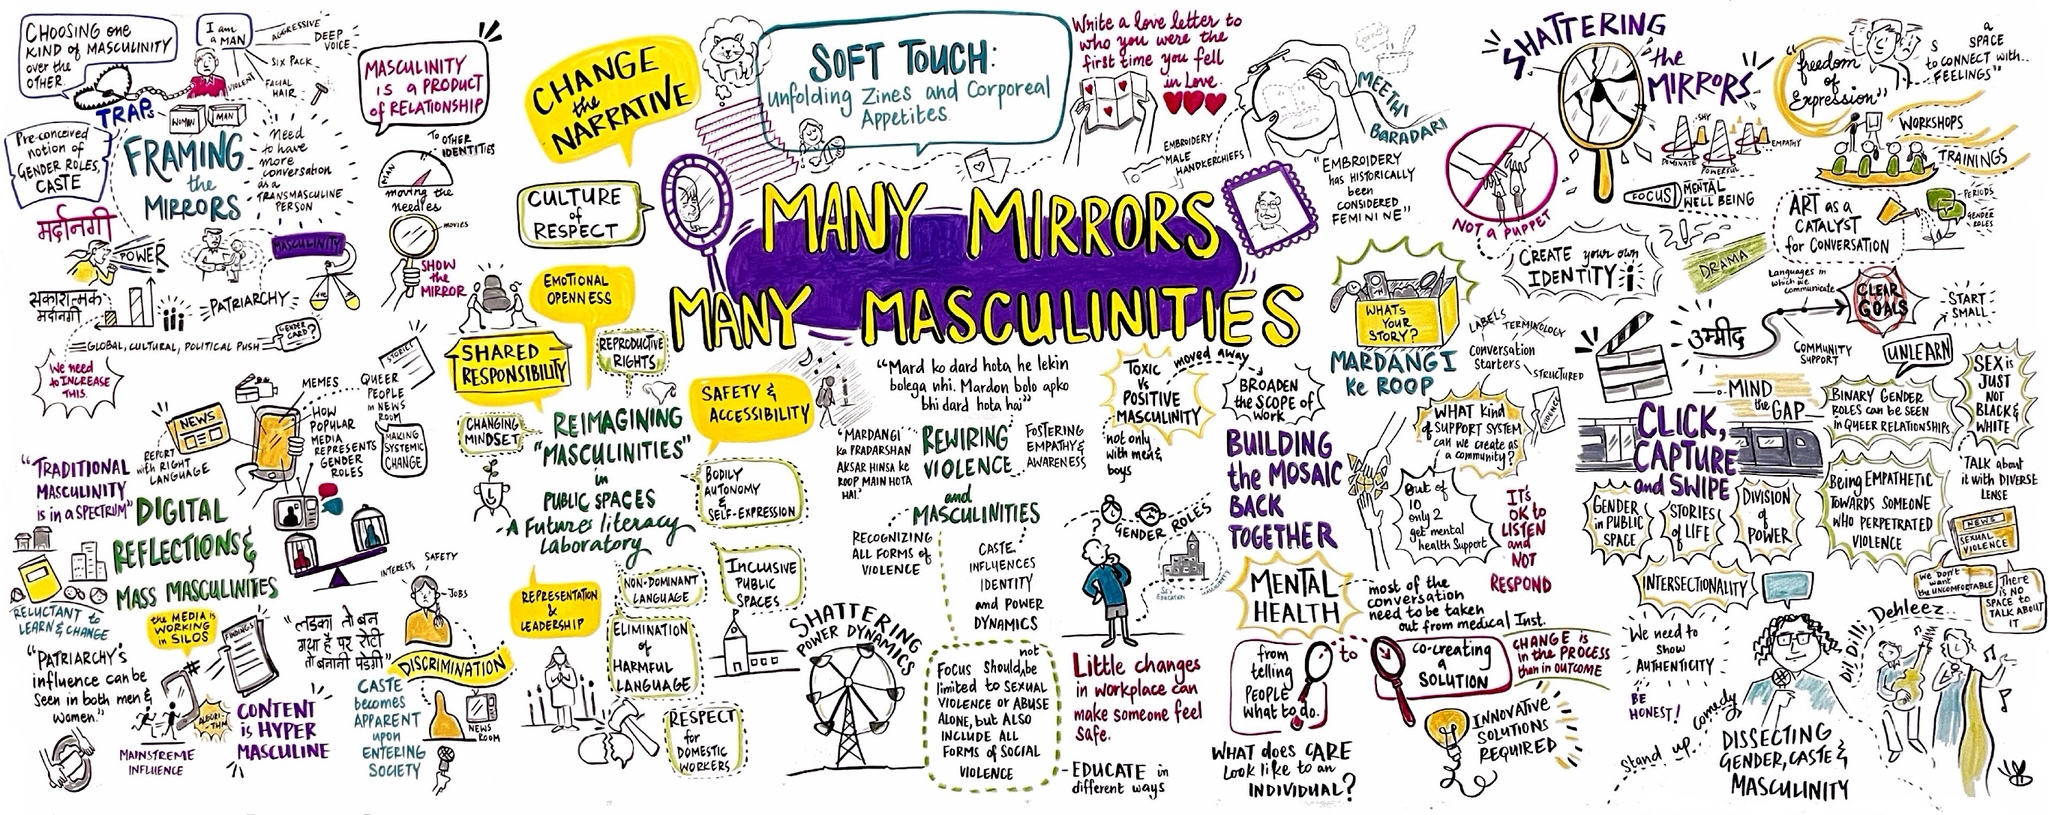 CHOOSING one
KIND of MASCULINITY
over the
OTHER
TRAP
I am
a MAN
AGGRESSIVE
DEEP
VOICE
SIX PACK
FACIAL
HAIR
VIOLENT
WOMAN
MAN
Pre-conceived
notion of
GENDER ROLES,
CASTE
FRAMING
the
MIRRORS
Need
to have
more
conversation
as a
TRANSMASCULINE
PERSON
मर्दानगी
POWER
MASCULINITY
सकारात्मक
मर्दानगी
PATRIARCHY
GLOBAL, CULTURAL, POLITICAL PUSH
GENDER
CARD?
We need
to INCREASE
THIS.
MASCULINITY
is a PRODUCT
of RELATIONSHIP
TO OTHER
IDENTITIES
MAN
moving the
needles
MOVIES
SHOW
the
MIRROR
STORIES
MEMES
HOW
POPULAR
MEDIA
REPRESENTS
GENDER
ROLES
QUEER
PEOPLE
in NEWS
ROOM
MAKING
SYSTEMIC
CHANGE
NEWS
REPORT
with RIGHT
LANGUAGE
"TRADITIONAL
MASCULINITY
is in a SPECTRUM"
DIGITAL
REFLECTIONS &
MASS MASCULINITIES
RELUCTANT to
LEARN & CHANGE
the MEDIA is
WORKING
in SILOS
FINDINGS
"PATRIARCHY'S
influence can be
seen in both men &
women."
MAINSTREME
INFLUENCE
ALGORI-
THM
CONTENT
is HYPER
MASCULINE
"लड़का तो बन
गया है पर रोटी
तो बनानी पड़ेगी"
INTERESTS
SAFETY
JOBS
DISCRIMINATION
CASTE
becomes
APPARENT
upon
ENTERING
SOCIETY
NEWS
ROOM
CHANGE
the
NARRATIVE
CULTURE
of
RESPECT
EMOTIONAL
OPENNESS
SHARED
RESPONSIBILITY
REPRODUCTIVE
RIGHTS
CHANGING
MINDSET
SAFETY &
ACCESSIBILITY
REIMAGINING
"MASCULINITIES"
in
PUBLIC SPACES
A Futures literacy
Laboratory
BODILY
AUTONOMY
& SELF-EXPRESSION
REPRESENTATION
&
LEADERSHIP
NON-DOMINANT
LANGUAGE
INCLUSIVE
PUBLIC
SPACES
ELIMINATION
of
HARMFUL
LANGUAGE
RESPECT
for
DOMESTIC
WORKERS
SOFT TOUCH:
unfolding Zines and Corporeal
Appetites
Write a love letter to
who you were the
first time you fell
in Love.
EMBROIDERY
MALE
HANDKERCHIEFS
MEETHI
BARADARI
"EMBROIDERY
has HISTORICALLY
been
CONSIDERED
FEMININE"
MANY MIRRORS
MANY MASCULINITIES
"Mard ko dard hota he lekin
bolega nhi. Mardon bolo apko
bhi dard hota hai"
"MARDANGI
ka PRADARSHAN
AKSAR HINSA ke
ROOP MAIN HOTA
HAI."
REWIRING
VIOLENCE
and
MASCULINITIES
FOSTERING
EMPATHY &
AWARENESS
RECOGNIZING
ALL FORMS of
VIOLENCE
CASTE
INFLUENCES
IDENTITY
and POWER
DYNAMICS
SHATTERING
POWER DYNAMICS
FOCUS should not be
limited to SEXUAL
VIOLENCE or ABUSE
ALONE, but ALSO
INCLUDE ALL
FORMS of SOCIAL
VIOLENCE
TOXIC
vs
POSITIVE
MASCULINITY
moved away
BROADEN
the SCOPE of
WORK
not only
with men &
boys
GENDER ROLES
SEX
EDUCATION
Little changes
in workplace can
make someone feel
safe.
- EDUCATE in
different ways
BUILDING
the MOSAIC
BACK
TOGETHER
WHAT'S
YOUR
STORY?
MARDANGI
Ke ROOP
LABELS
TERMINOLOGY
Conversation
Starters
STRUCTURED
EVIDENCE
WHAT Kind
of SUPPORT SYSTEM
can we create as
a community?
Out of
10
only 2
get mental
health Support
IT'S
OK to
LISTEN
and
NOT
RESPOND
MENTAL
HEALTH
most of the
conversation
need to be taken
out from medical Inst.
from
telling
PEOPLE
what to do.
to
co-creating
a
SOLUTION
CHANGE is
in the PROCESS
than in OUTCOME
WHAT does CARE
Look like to an
INDIVIDUAL?
INNOVATIVE
SOLUTIONS
REQUIRED
SHATTERING
the
MIRRORS
NOT a PUPPET
SHY
DOMINATE
POWERFUL
EMPATHY
FOCUS
MENTAL
WELL BEING
CREATE your own
IDENTITY
"freedom
of
Expression"
a
SPACE
to CONNECT with..
FEELINGS"
WORKSHOPS
TRAININGS
ART as a
CATALYST
for CONVERSATION
PERIODS
GENDER
ROLES
DRAMA
Languages in
which we
communicate
CLEAR
GOALS
- START
SMALL -
उम्मीद
COMMUNITY
SUPPORT
UNLEARN
MIND
the GAP
CLICK,
CAPTURE
and SWIPE
BINARY GENDER
ROLES can be SEEN
in QUEER RELATIONSHIPS
SEX is
JUST
NOT
BLACK &
WHITE
"TALK about
it with DIVERSE
LENSE
Being EMPATHETIC
TOWARDS SOMEONE
WHO PERPETRATED
VIOLENCE
GENDER
in PUBLIC
SPACE
STORIES
of LIFE
DIVISION
of
POWER
NEWS
SEXUAL
VIOLENCE
We DON'T
WANT
the UNCOMFORTABLE
THERE
is NO
SPACE to
TALK ABOUT
IT
INTERSECTIONALITY
We need to
show
AUTHENTICITY
BE
HONEST!
Stand up.. comedy
DISSECTING
GENDER, CASTE &
MASCULINITY
Dil Dilli, Dehleez..